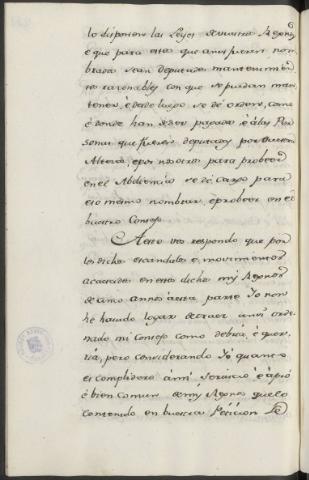 lo disponen las Leyes de vuestros Regnos,
é que para esto que ansi fueren nom-
brados sean deputados mantenimien-
tos razonables con que se puedan man-
tener, é desde luego se dé orden, como
é donde han de ser pagados é á las Per-
sonas que fueren deputadas por Vuestra
Alteza, é por nosotros para probeer
en el Abdiencia se dé cargo para
eso mismo nombrar, é probeer en el
vuestro Consejo
A esto vos respondo que por
los dichos escandalos é movimientos
acaecidos en estos dichos mis Regnos
de cinco annos acá parte Yo non
hé havido logar de traer ansi orde-
nado mi Consejo como debia, é quer-
ria, pero considerando Yo quanto
es complidero á mi servicio é á pró
é bien comun de mis Regnos que lo
contenido en vuestra Peticion se